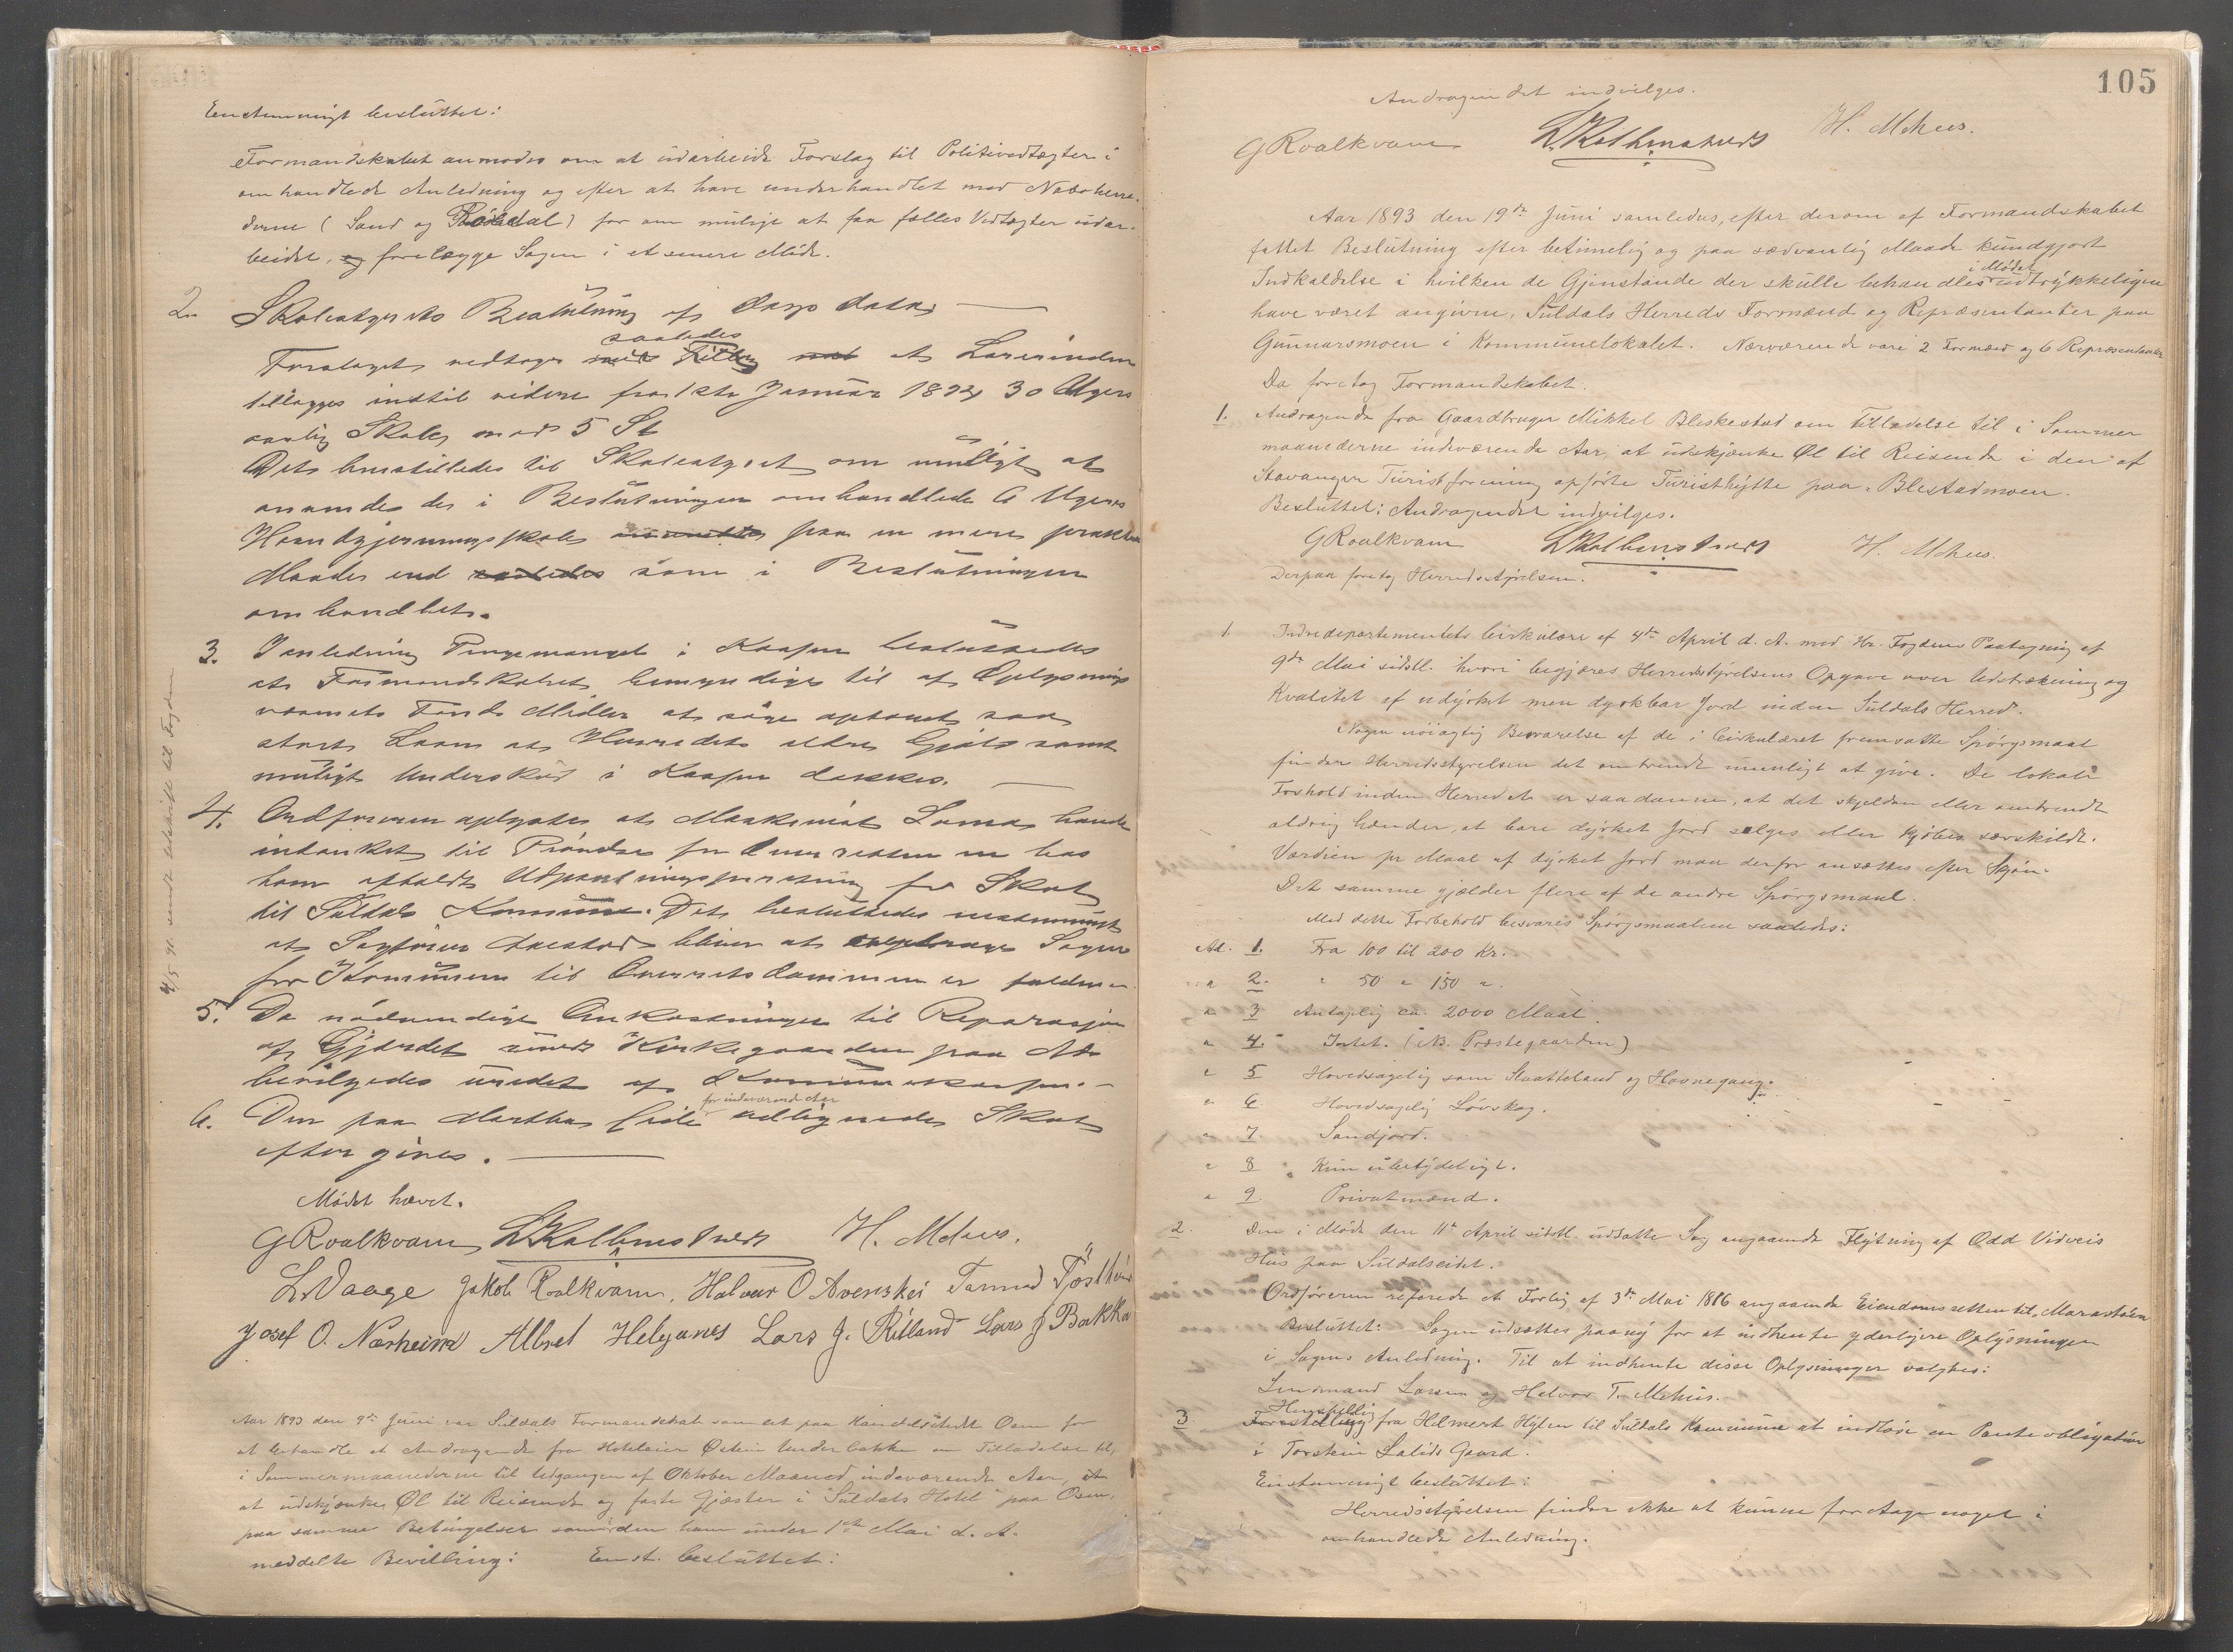 Enstemmigt besluttet:
Formandskabet anmodes om at udarbeide Forslag til Politivedtægter i
omhandlede Anledning og efter at have underhandlet med Naboherre-
derne (Sand og Røldal) for om muligt at faa fælles Vedtægter udar-
beidet, og forelægge Sagen i et senere Møde.
2. Skolestyrets Beslutning af Dags Dato
Forslaget vedtages saaledes at Lærerinden
tillægges indtil videre fra 1ste Januar 1894 30 Ugers
aarlig Skole med 5
Det henstilledes til Skolestyret om muligt at
anvende de i Beslutningen omhandlede 6 Ugers
Haandgjerningsskole paa en mere praktisk
Maade end som i Beslutningen
omhandlet.
3. I Anledning Pengemangel i Kassen besluttedes
at Formandskabet bemyndiges til af Oplysnings
væsenets Fonds Midler at søge optaget saa
stort Laan at Herredets ældre Gjæld samt
muligt Underskud i Kassen dækkes.
4. Ordføreren oplyste at Loma havde
indanket til Prøvelse for Overretten en hos
ham afholdt Udpantningsforretning for Skat
til Suldals Kommune. Det besluttedes enstemmigt
at Sagfører bliver at Sagen
for Kommunen til Overretsdommen er falden.
4/5 91 sendt Udskrift til Fogden
5. De nødvendige Omkostninger til Reparasjon
af Gjærdet rundt Kirkegaarden paa
bevilgedes udredet af Kommunekassen.
for indeværende Aar
6. Den paa Martha Lide udlignede Skat
eftergives.
Mødet hævet.
G Roalkvam L Kolbenstvedt H. Mehus.
L. Vaage Jakob Roalkvam, Halvar O Aveneskei Tormod Tøsthei
Josef O. Nærheim Albret Helganes Lars J. Rilland Lars J Bakka
Aar 1893 den 9de Juni var Suldals Formandskab samlet paa Handelsstedet Osen for
at behandle et Andragende fra Hoteleier Østein Underbakke om Tilladelse til,
i Sommermaanederne til Udgangen af Oktober Maaned indeværende Aar,
at udskjænke Øl til Reisende og faste Gjæster i "Suldals Hotel" paa Osen,
paa samme Betingelser som den ham under 1ste Mai d. A.
meddelte Bevilling: Enst. besluttet:
105
Andragendet indvilges.
G Roalkvam L Kolbenstvedt H. Mehus.
Aar 1893 den 19de Juni samledes, efter derom af Formandskabet
fattet Beslutning efter betimelig og paa sædvanlig Maade kundgjort
Indkaldelse i hvilken de Gjenstande der skulle behandles i Mødet udtrykkeligen
have været angivne, Suldals Herreds Formænd og Repræsentanter paa
Gunnarsmoen i Kommunelokalet. Nærværende vare 2 Formænd og 6 Repræsentanter
Da foretog Formandskabet.
1. Andragende fra Gaardbruger Mikkel Bleskestad om Tilladelse til i Sommer
maanederne indeværende Aar, at udskjænke Øl til Reisende i den af
Stavanger Turistforening opførte Turisthytte paa Blestadmoen.
Besluttet: Andragendet indvilges.
G Roalkvam L Kolbenstvedt H. Mehus.
Derpaa foretog Herredsstyrelsen.
1. Indredepartementets Cirkulære af 4de April d. A. med Hr. Fogdens Paategning af
9de Mai sidstl. hvori begjæres Herredsstyrelsens Opgave over Udstrækning og
Kvalitet af udyrket men dyrkbar Jord inden Suldals Herred.
Nogen nøiagtig Besvarelse af de i Cirkulæret fremsatte Spørgsmaal
finder Herredsstyrelsen det omtrendt umuligt at give. De lokale
Forhold inden Herredet er saadanne, at det skjelden eller omtrendt
aldrig hænder, at bare dyrket Jord sælges eller kjøbes særskildt.
Værdien pr Maal af dyrket Jord maa derfor ansættes efter Skjøn.
Det samme gjælder flere af de andre Spørgsmaal.
Med dette Forbehold besvares Spørgsmaalene saaledes:
Ad. 1. Fra 100 til 200 Kr.
" 2. " 50 " 150 ".
" 3 Antagelig ca. 2000 Maal.
" 4. Intet. (NB. Præstegaarden)
" 5 Hovedsagelig som Slaatteland og Havnegang.
" 6. Hovedsagelig Løvskog.
" 7. Sandjord.
" 8 Kun ubetydeligt.
" 9. Privatmænd.
2. Den i Møde den 11te April sidstl. udsatte Sag angaaende Flytning af Odd Vidveis
Hus paa Suldalseidet.
Ordføreren refererede et Forlig af 3de Mai 1886 angaaende Eiendomsretten til Marastøen
Besluttet: Sagen udsættes paany for at indhente yderligere Oplysninger
i Sagens Anledning. Til at indhente disse Oplysninger valgtes:
Lensmand Larsen og Helvor T. Mehus.
3. Henstilling fra Helmerk Hylen til Suldals Kommune at indløse en Panteobligation
i Torstein Lalids Gaard.
Enstemmigt besluttet:
Herredsstyrelsen finder ikke at kunne foretage noget i
omhandlede Anledning.